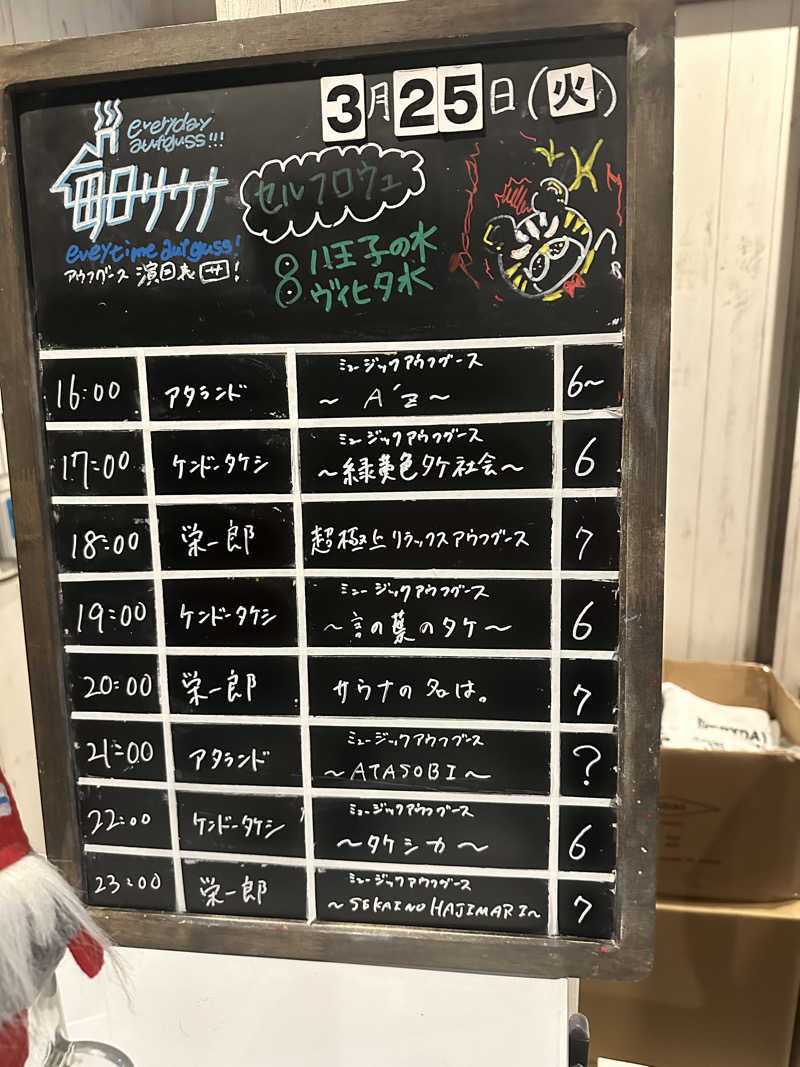 3月25日(火)
everyday
aufguss!!!
毎日サウナ
everytime aufguss!
アウフグース 演目表 サ!
セルフロウリュ
8 八王子の水
ヴィヒタ水
16:00 アタランド ミュージックアウフグース 6~
～ A'z ～
17:00 ケンドータケシ ミュージックアウフグース 6
～緑黄色タケ社会～
18:00 栄一郎 超極上リラックスアウフグース 7
19:00 ケンドータケシ ミュージックアウフグース 6
～言の葉のタケ～
20:00 栄一郎 サウナの名は。 7
21:00 アタランド ミュージックアウフグース ?
～ATASOBI～
22:00 ケンドータケシ ミュージックアウフグース 6
～タケシカ～
23:00 栄一郎 ミュージックアウフグース 7
～SEKAINO HAJIMARI～